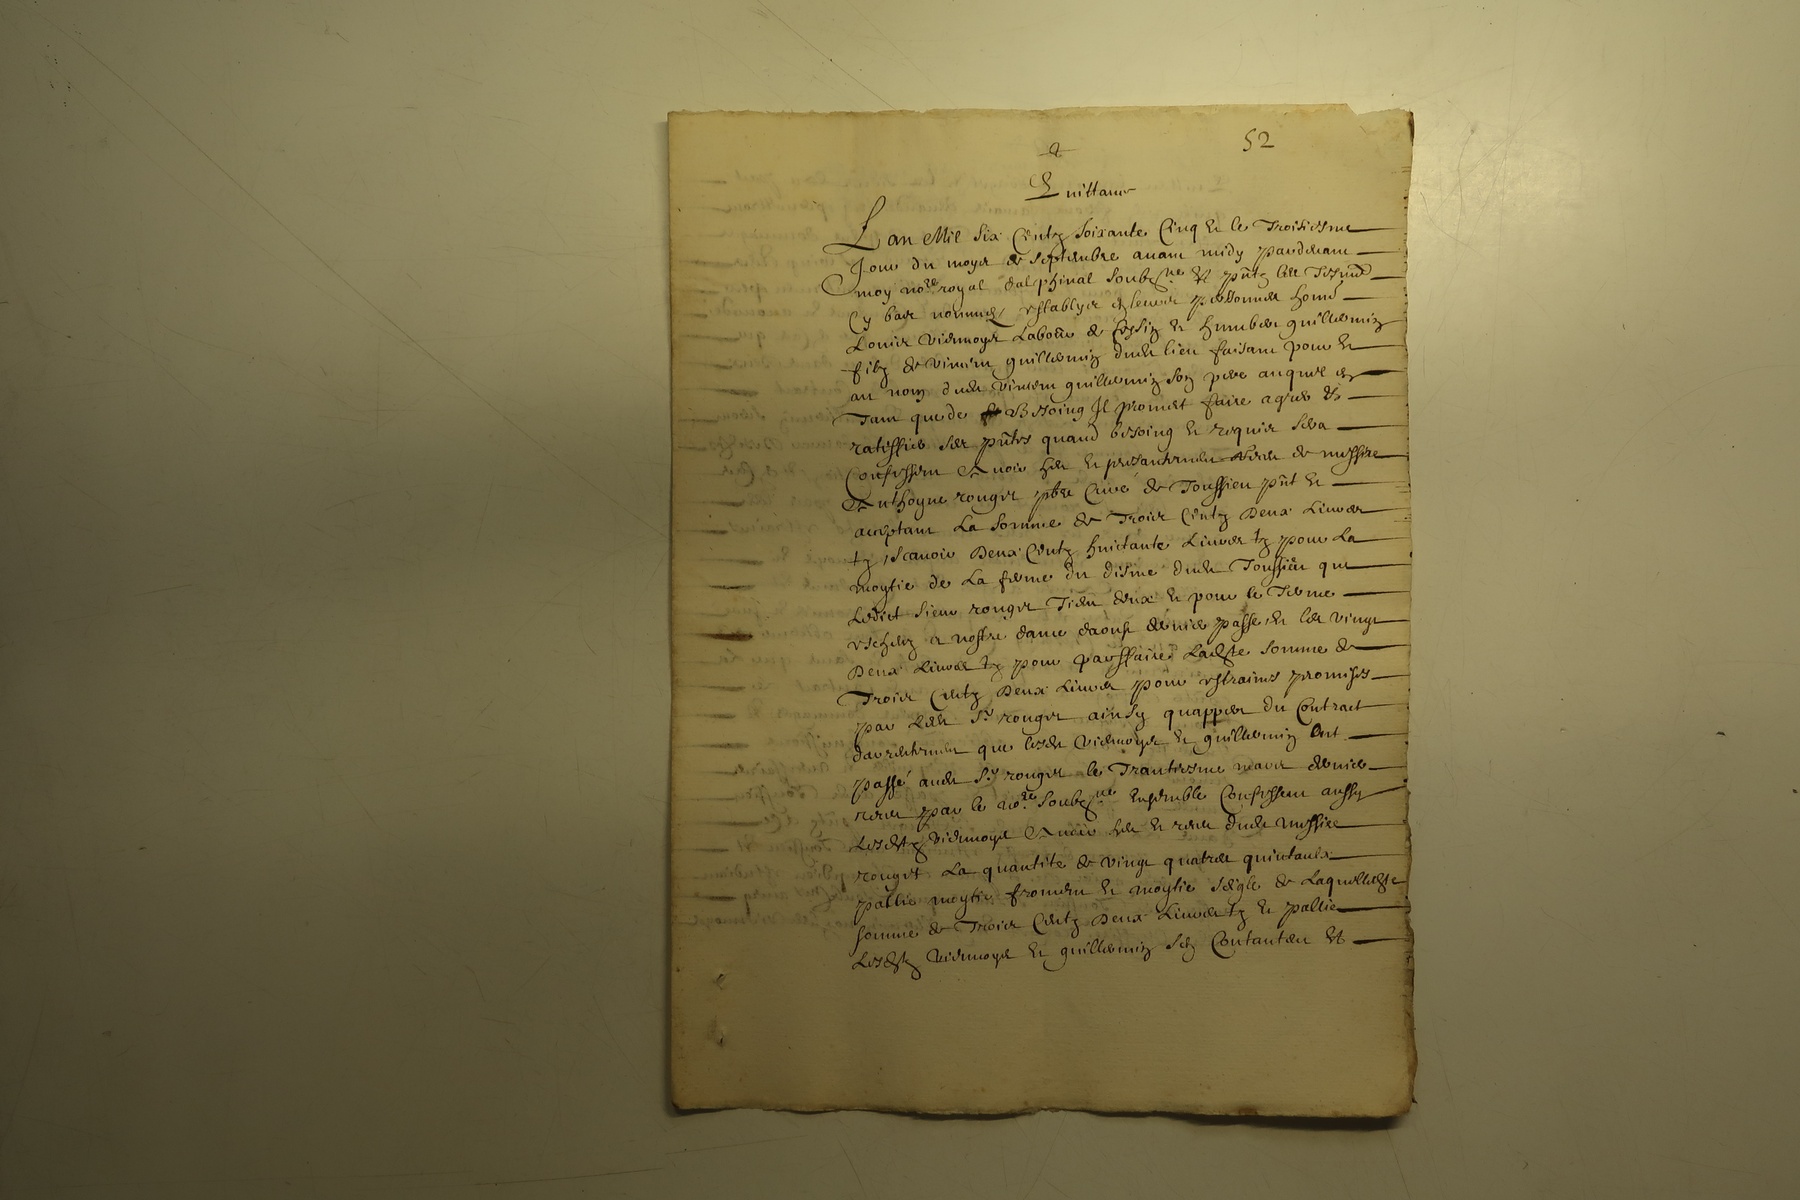 52
Quittance
Lan Mil six Centz soixante Cinq et le Troisiesme
Jour du moys de septembre avant midy pardevant
moy no.re royal dalphinal soubz.ne et pntz les Tesmo
Cy bas nommes establys en leurs personnes honn
Louis Viermoys Labor de et humbert guillermin
filz de Vincent guillermin dudt lieu faisant pour et
au nom dudt Vincent guillermin son pere auquel en
Tant que de Besoing Il promet faire agreer et
ratiffier ses pntes quand besoing et requis sera
Confessent Avoir heu et presantement receu de messire
Anthoyne rouget pbre Curé de Toussieu pnt et
acceptant La somme de Trois Centz Deux Livres
tz, scavoir Deux Centz huictante Livres tz pour La
moytie de La ferme du disme dudt Toussieu que
Ledict sieur rouget Tient deux et pour le Terme
escheu a nostre dame daoust dernier passe, et les vingt
Deux Livres tz pour parffaire Ladste somme de
Trois Centz Deux Livres pour estraines promises
par Ledt Sr rouget ainsy quappert du Contract
darrentement que lesdt Viermoys et guillermin Ont
passé audt Sr rouget le Trantiesme mars dernier
receu par le no.re soubz.ne Ensemble Confessent aussy
Lesdstz Viermoys Avoir heu et receu dudt messire
rouget La quantite de vingt quatre quintaulx
pallie moytie froment et moytie seigle de Laquelledste
somme de Trois Centz Deux Livres tz et pallie
Lesdstz Viermoys et guillermin sen Contantent et